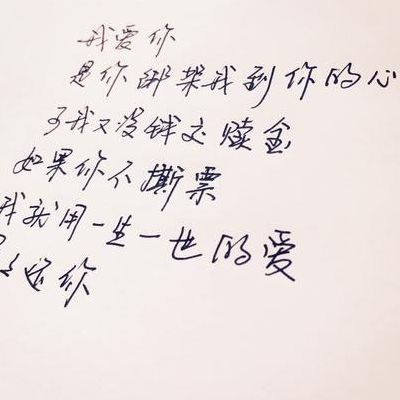 我爱你
是你绑架我到你的心
了我又没钱交赎金
如果你不撕票
我就用一生一世的爱
还你